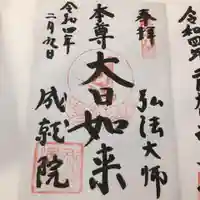 奉拝
弘法大師
本尊大日如来
成就院
令和四年
二月九日
令和四年